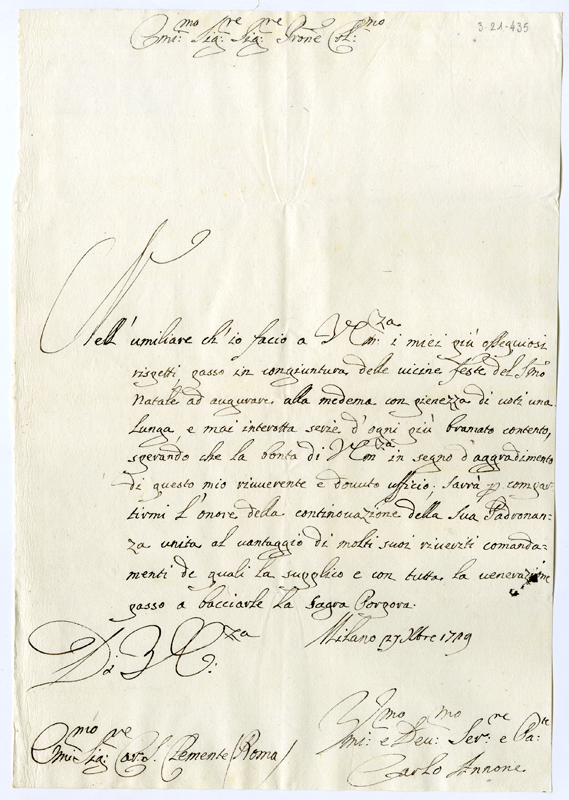 Emi:mo Sig:re Sig:re Prone Col:mo
3-21-435
Nell' umiliare ch' io facio a V Em:za i miei più ossequiosi
rispetti, passo in congiuntura delle vicine feste del Smo
Natale ad augurare alla medema con pienezza di voti una
lunga, e mai interotta serie d' ogni più bramato contento,
sperando che la bontà di V Em:za in segno d' aggradimento
di questo mio riuuerente e douuto ufficio, sarrà p compar-
tirmi l' onore della continouazione della sua Padronan-
za unita al vantaggio di molti suoi riueriti comanda-
menti de quali la supplico e con tutta la venerazione
passo a bacciarle la sagra Porpora.
Di V E:za
Milano 27 Xbre 1719
Emi:mo Sig:re Car. S. Clemente /Roma/
Umi:mo e Deu:mo Ser:re e
Carlo Annone